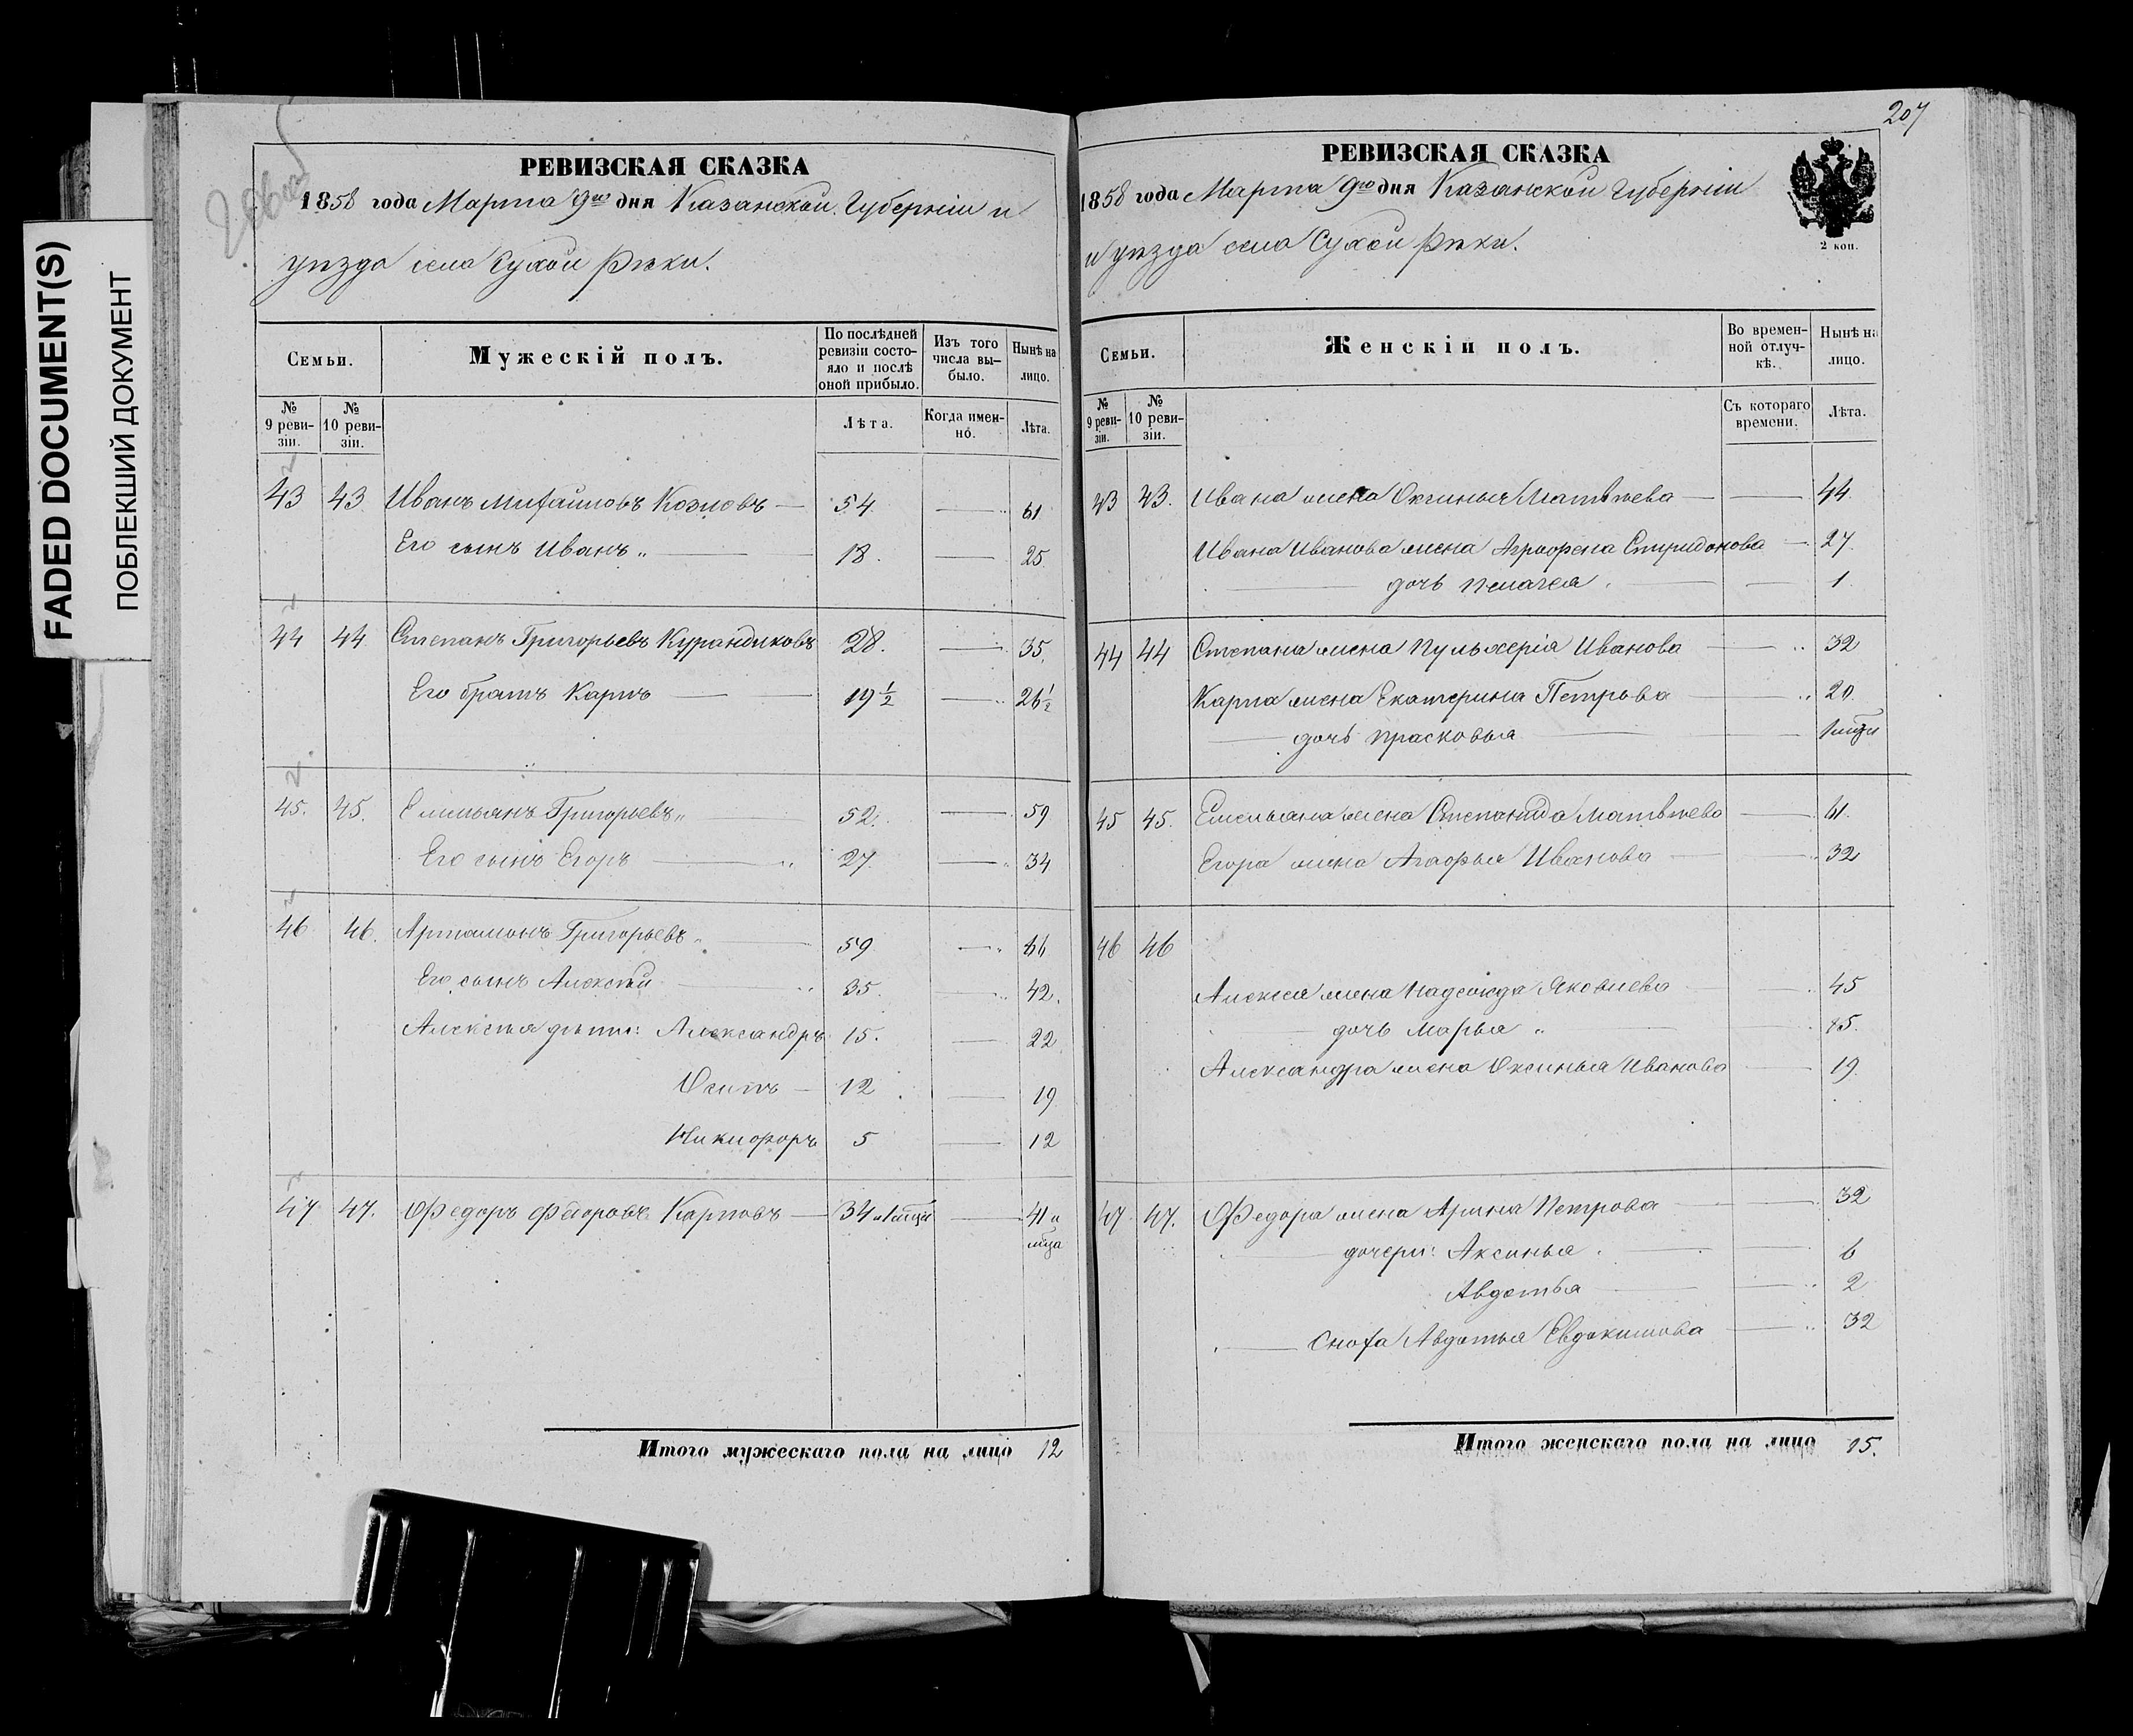 FADED DOCUMENT(S)
ПОБЛЕКШИЙ ДОКУМЕНТ
РЕВИЗСКАЯ СКАЗКА
1858 года Марта 9го дня Казанской Губерніи и
уѣзда села Сухой Рѣки.
Семьи.
Мужескій полъ.
По послѣдней ревизіи состояло и послѣ оной прибыло.
Изъ того числа выбыло.
Нынѣ на лицо.
№ 9 ревизіи.
№ 10 ревизіи.
Лѣта.
Когда именно.
Лѣта.
43 43 Иванъ Михайловъ Козловъ — 54 — 61
Его сынъ Иванъ „ — 18. — 25
44 44 Степанъ Григорьевъ Курандиковъ 28. — 35.
Его братъ Карпъ — 19½ — 26½
45. 45. Емельянъ Григорьевъ „ — 52. — 59
Его сынъ Егоръ — 27 — 34
46 46. Артамонъ Григорьевъ „ — 59 — 66
Его сынъ Алексѣй — 35. — 42.
Алексѣя дѣти: Александръ 15. — 22
Осипъ — 12 — 19
Никифоръ 5 — 12
47 47. Федоръ Федоровъ Карповъ — 34 и 1 мца — 41 и
мца
Итого мужескаго пола на лицо 12
207
РЕВИЗСКАЯ СКАЗКА
1858 года Марта 9го дня Казанской Губерніи
и уѣзда села Сухой Рѣки.
2 коп.
Семьи.
Женскій полъ.
Во временной отлучкѣ.
Нынѣ на лицо.
№ 9 ревизіи.
№ 10 ревизіи.
Съ котораго времени.
Лѣта.
43 43. Ивана жена Оксинья Матвѣева — 44
Ивана Иванова жена Аграфена Спиридонова — 27
— дочь Пелагея — 1
44 44 Степана жена Пульхерія Иванова — 32
Карпа жена Екатерина Петрова — 20
— дочь Прасковья — 1
45 45. Емельяна жена Степанида Матвѣева — 61.
Егора жена Агафья Иванова — 32
46 46
Алексея жена Надежда Яковлева — 45
— дочь Марья „ — 15.
Александра жена Оксинья Иванова — 19
47 47. Федора жена Арина Петрова — 32
— дочери: Аксинья — 6
Авдотья — 2
— сноха Авдотья Евдокимова — 32
Итого женскаго пола на лицо 15.